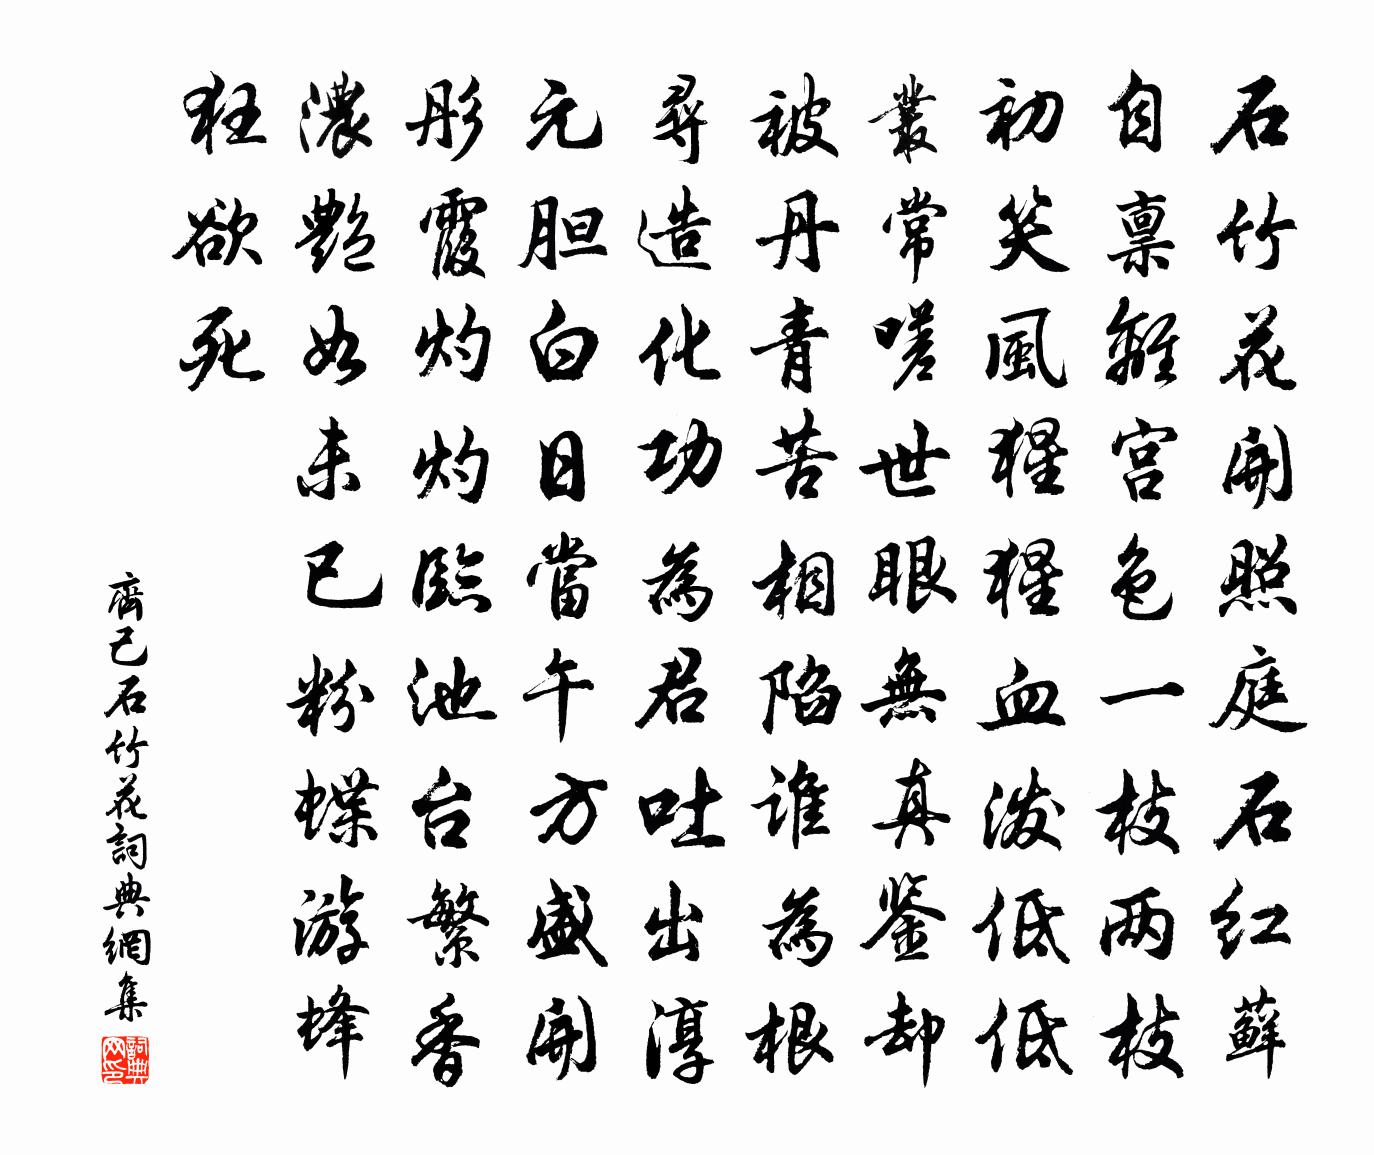 石竹花開照庭石红蘚
自禀離宫色一枝两枝
初笑風猩猩血泼低低
叢常嗟世眼無真鉴却
被丹青苦相陷谁為根
尋造化功為君吐出淳
元胆白日當午方盛開
彤霞灼灼臨池台繁香
濃艷如未已粉蝶游蜂
狂欲死
齊己石竹花詞典網集
詞典网印